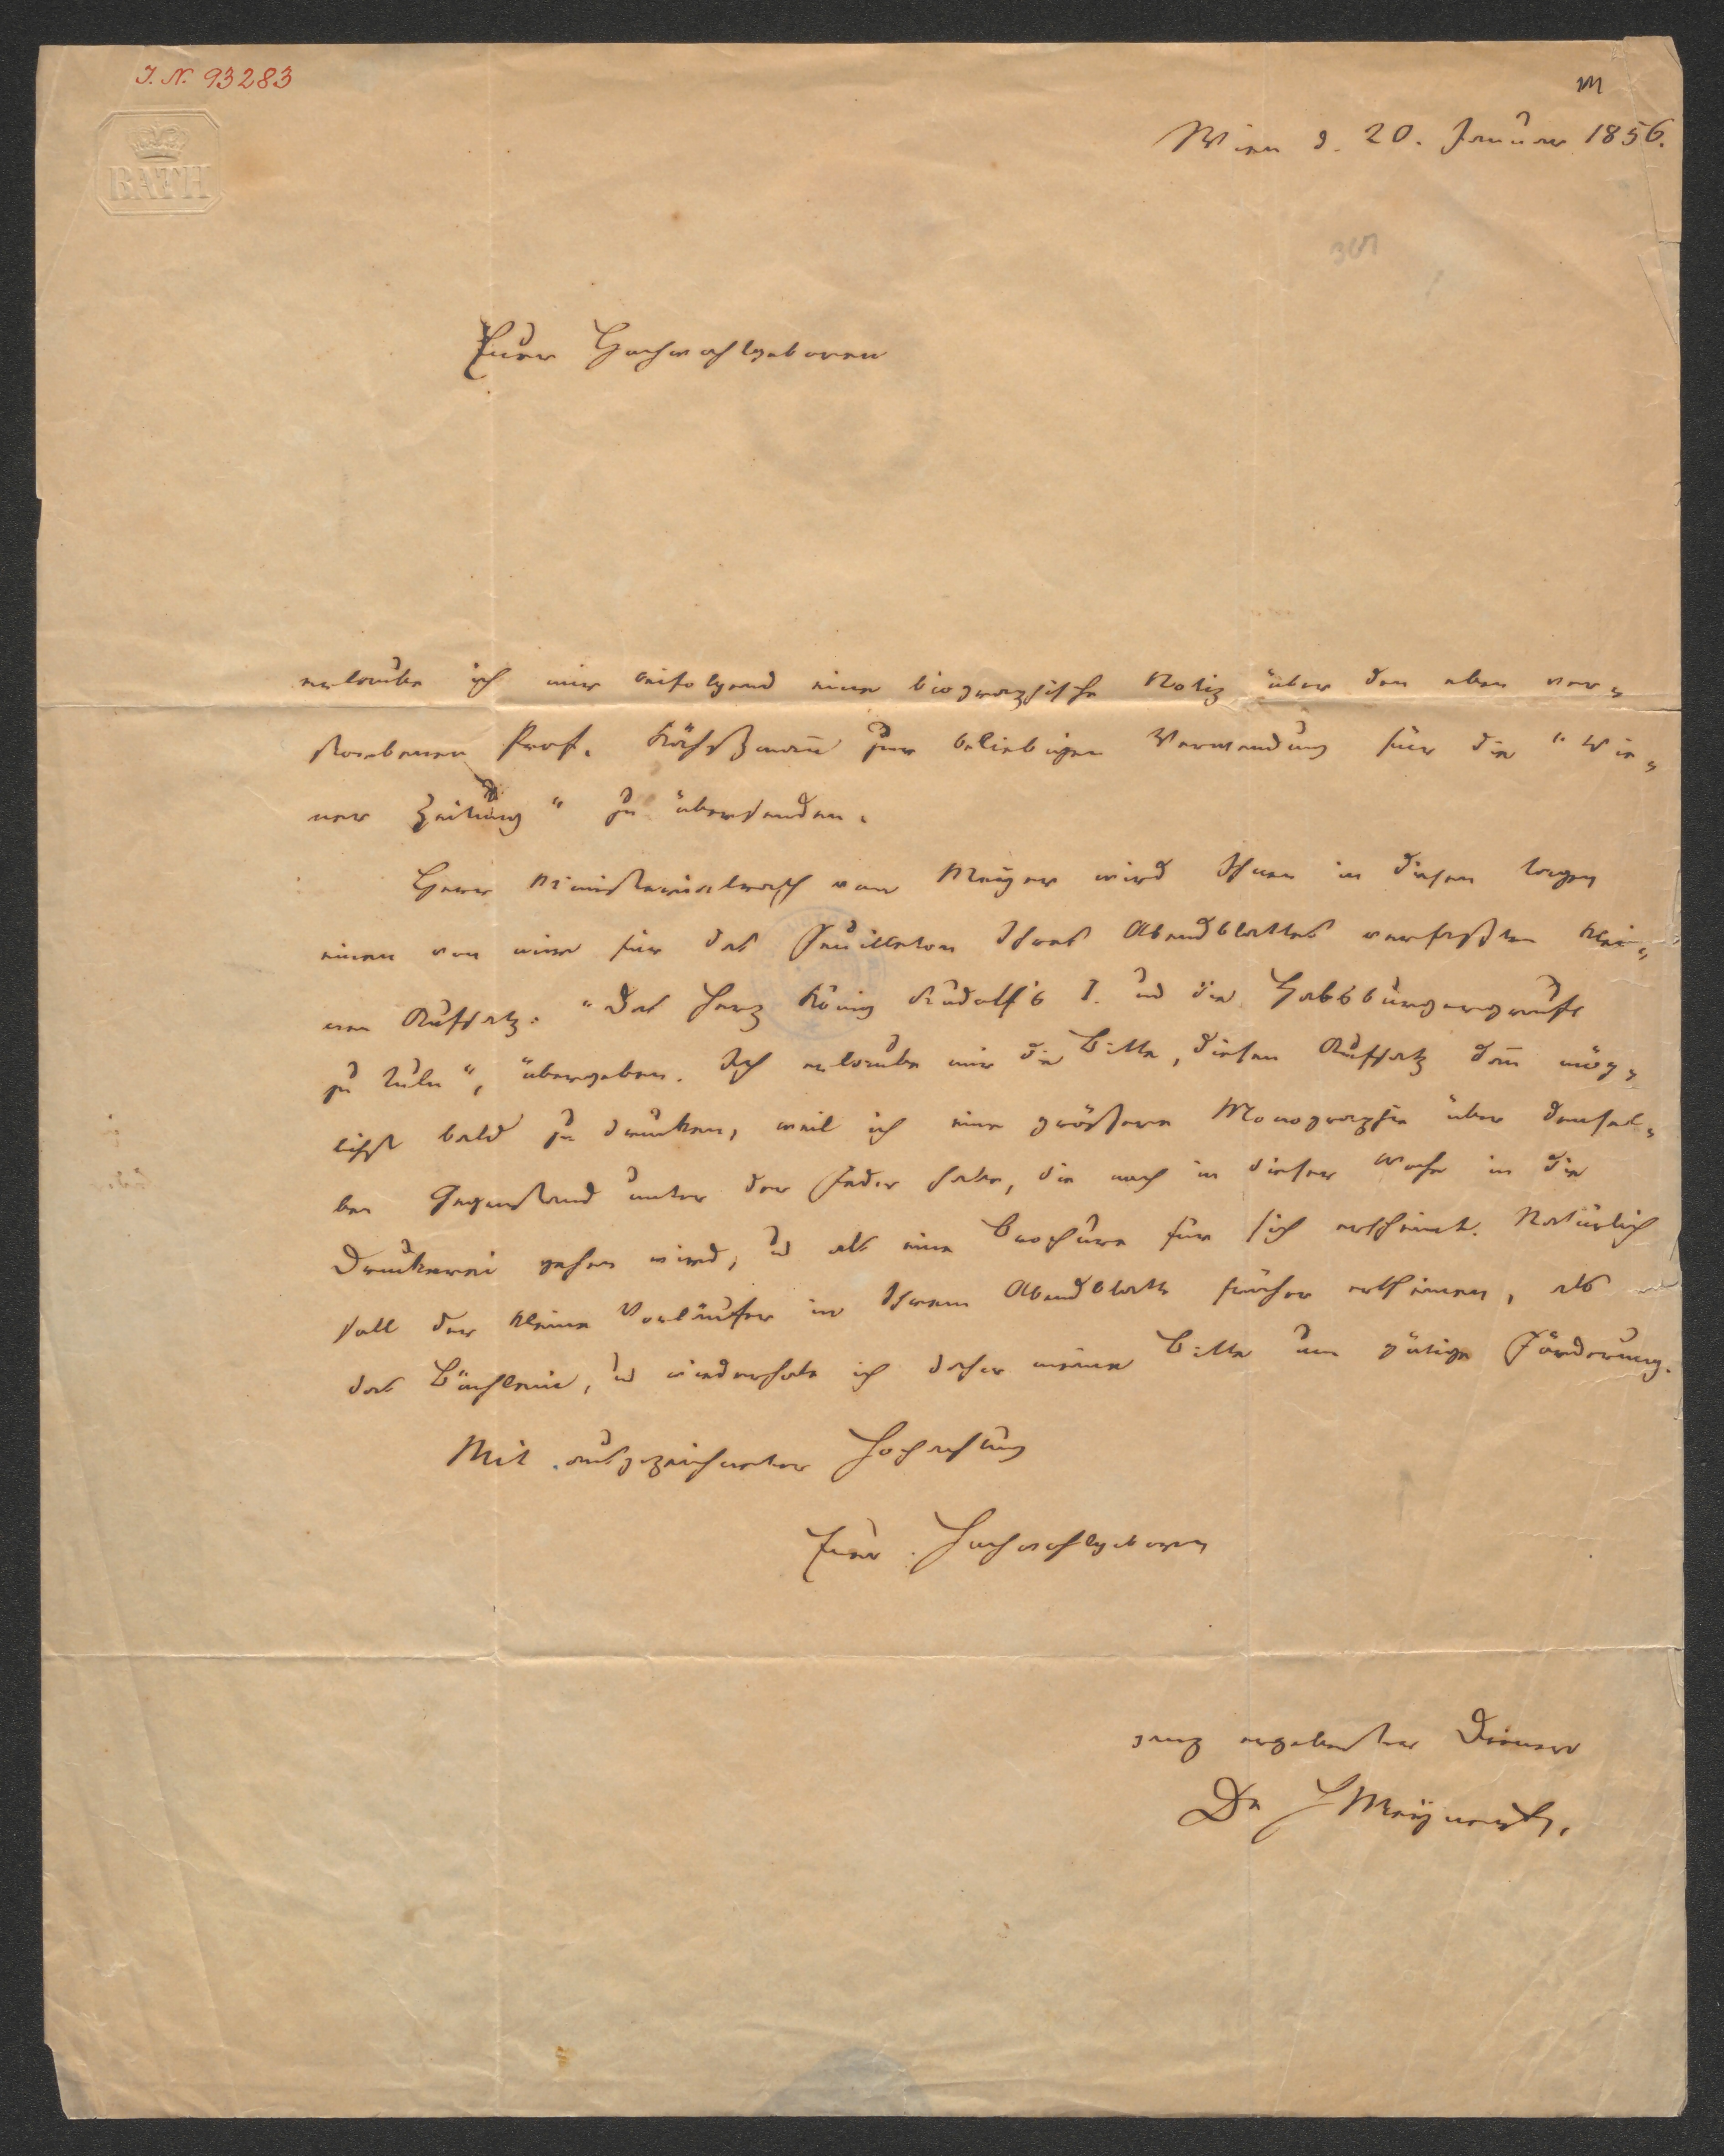 I. N. 93283
BATH
Wien d. 20. Januar 1856.
Euer Hochwohlgeboren
erlaube ich mir beifolgend eine biographische Notiz über den eben ver„
storbenen Prof. Kähßmann̅ zur beliebigen Verwendung für die "Wie„
ner Zeitung" zu übersenden.
Herr Ministerialrath von Meyer wird Ihnen in diesen Tagen
einen von mir für das Feuilleton Ihres Abendblattes verfaßten klei„
nen Aufsatz: "Das Herz König Rudolf's I. und die Habsburgergruft
zu Tuln", übergeben. Ich erlaube mir die Bitte, diesen Aufsatz dan̅ mög„
lichst bald zu drucken, weil ich eine größere Monographie über densel„
ben Gegenstand unter der Feder habe, die noch in dieser Woche in die
Druckerei gehen wird, und als eine Brochüre für sich erscheint. Natürlich
soll der kleine Vorläufer in Ihrem Abendblatte früher erscheinen, als
das Büchlein, und wiederhole ich daher meine Bitte um gütige Förderung.
Mit ausgezeichneter Hochachtung
Euer Hochwohlgeboren
ganz ergebenster Diener
Dr HMeynert,